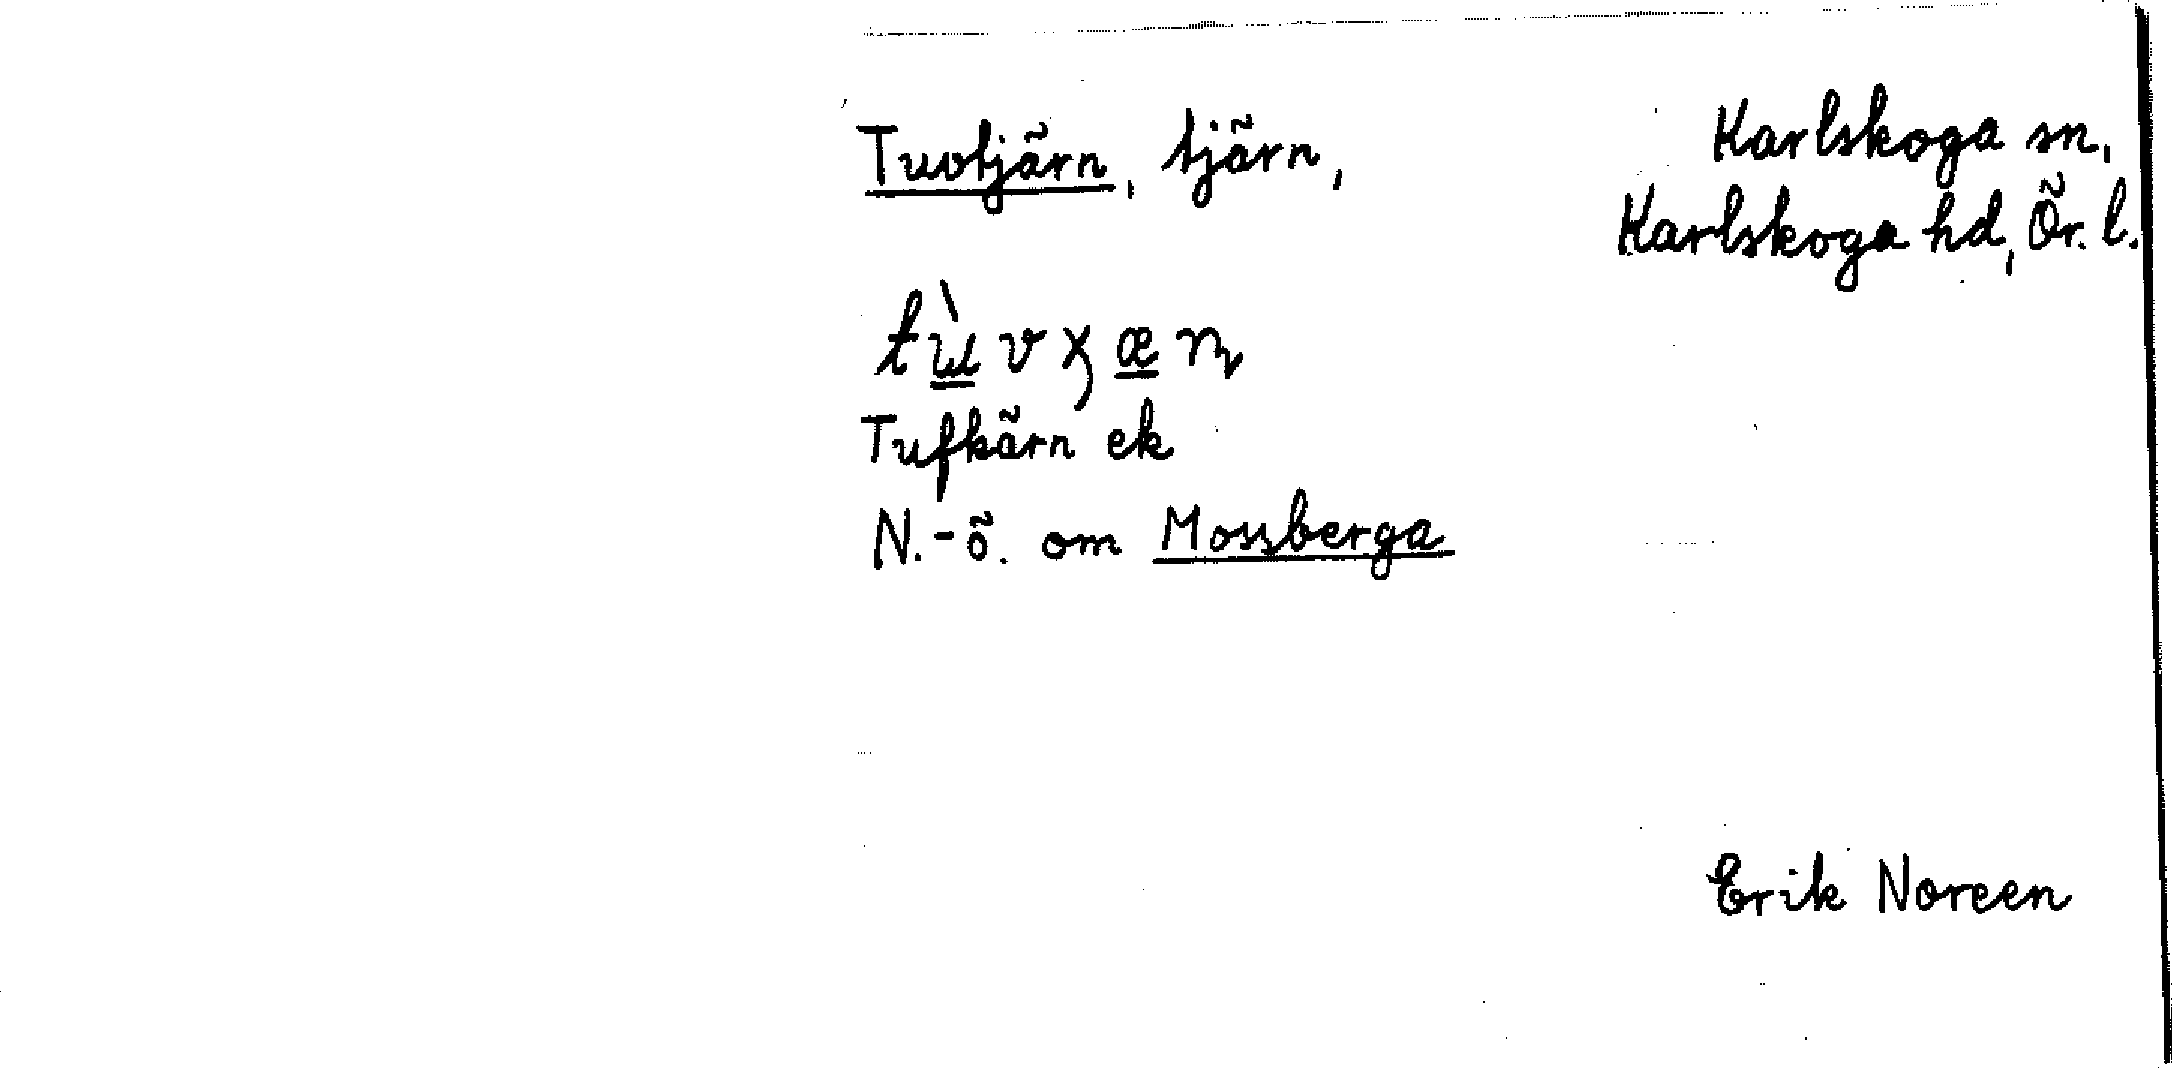 Tuvtjärn, tjärn,
Karlskoga sn,
Karlskoga hd, Ör. l.
Tufkärn ek
N.-ö. om Mossberga
Erik Noreen